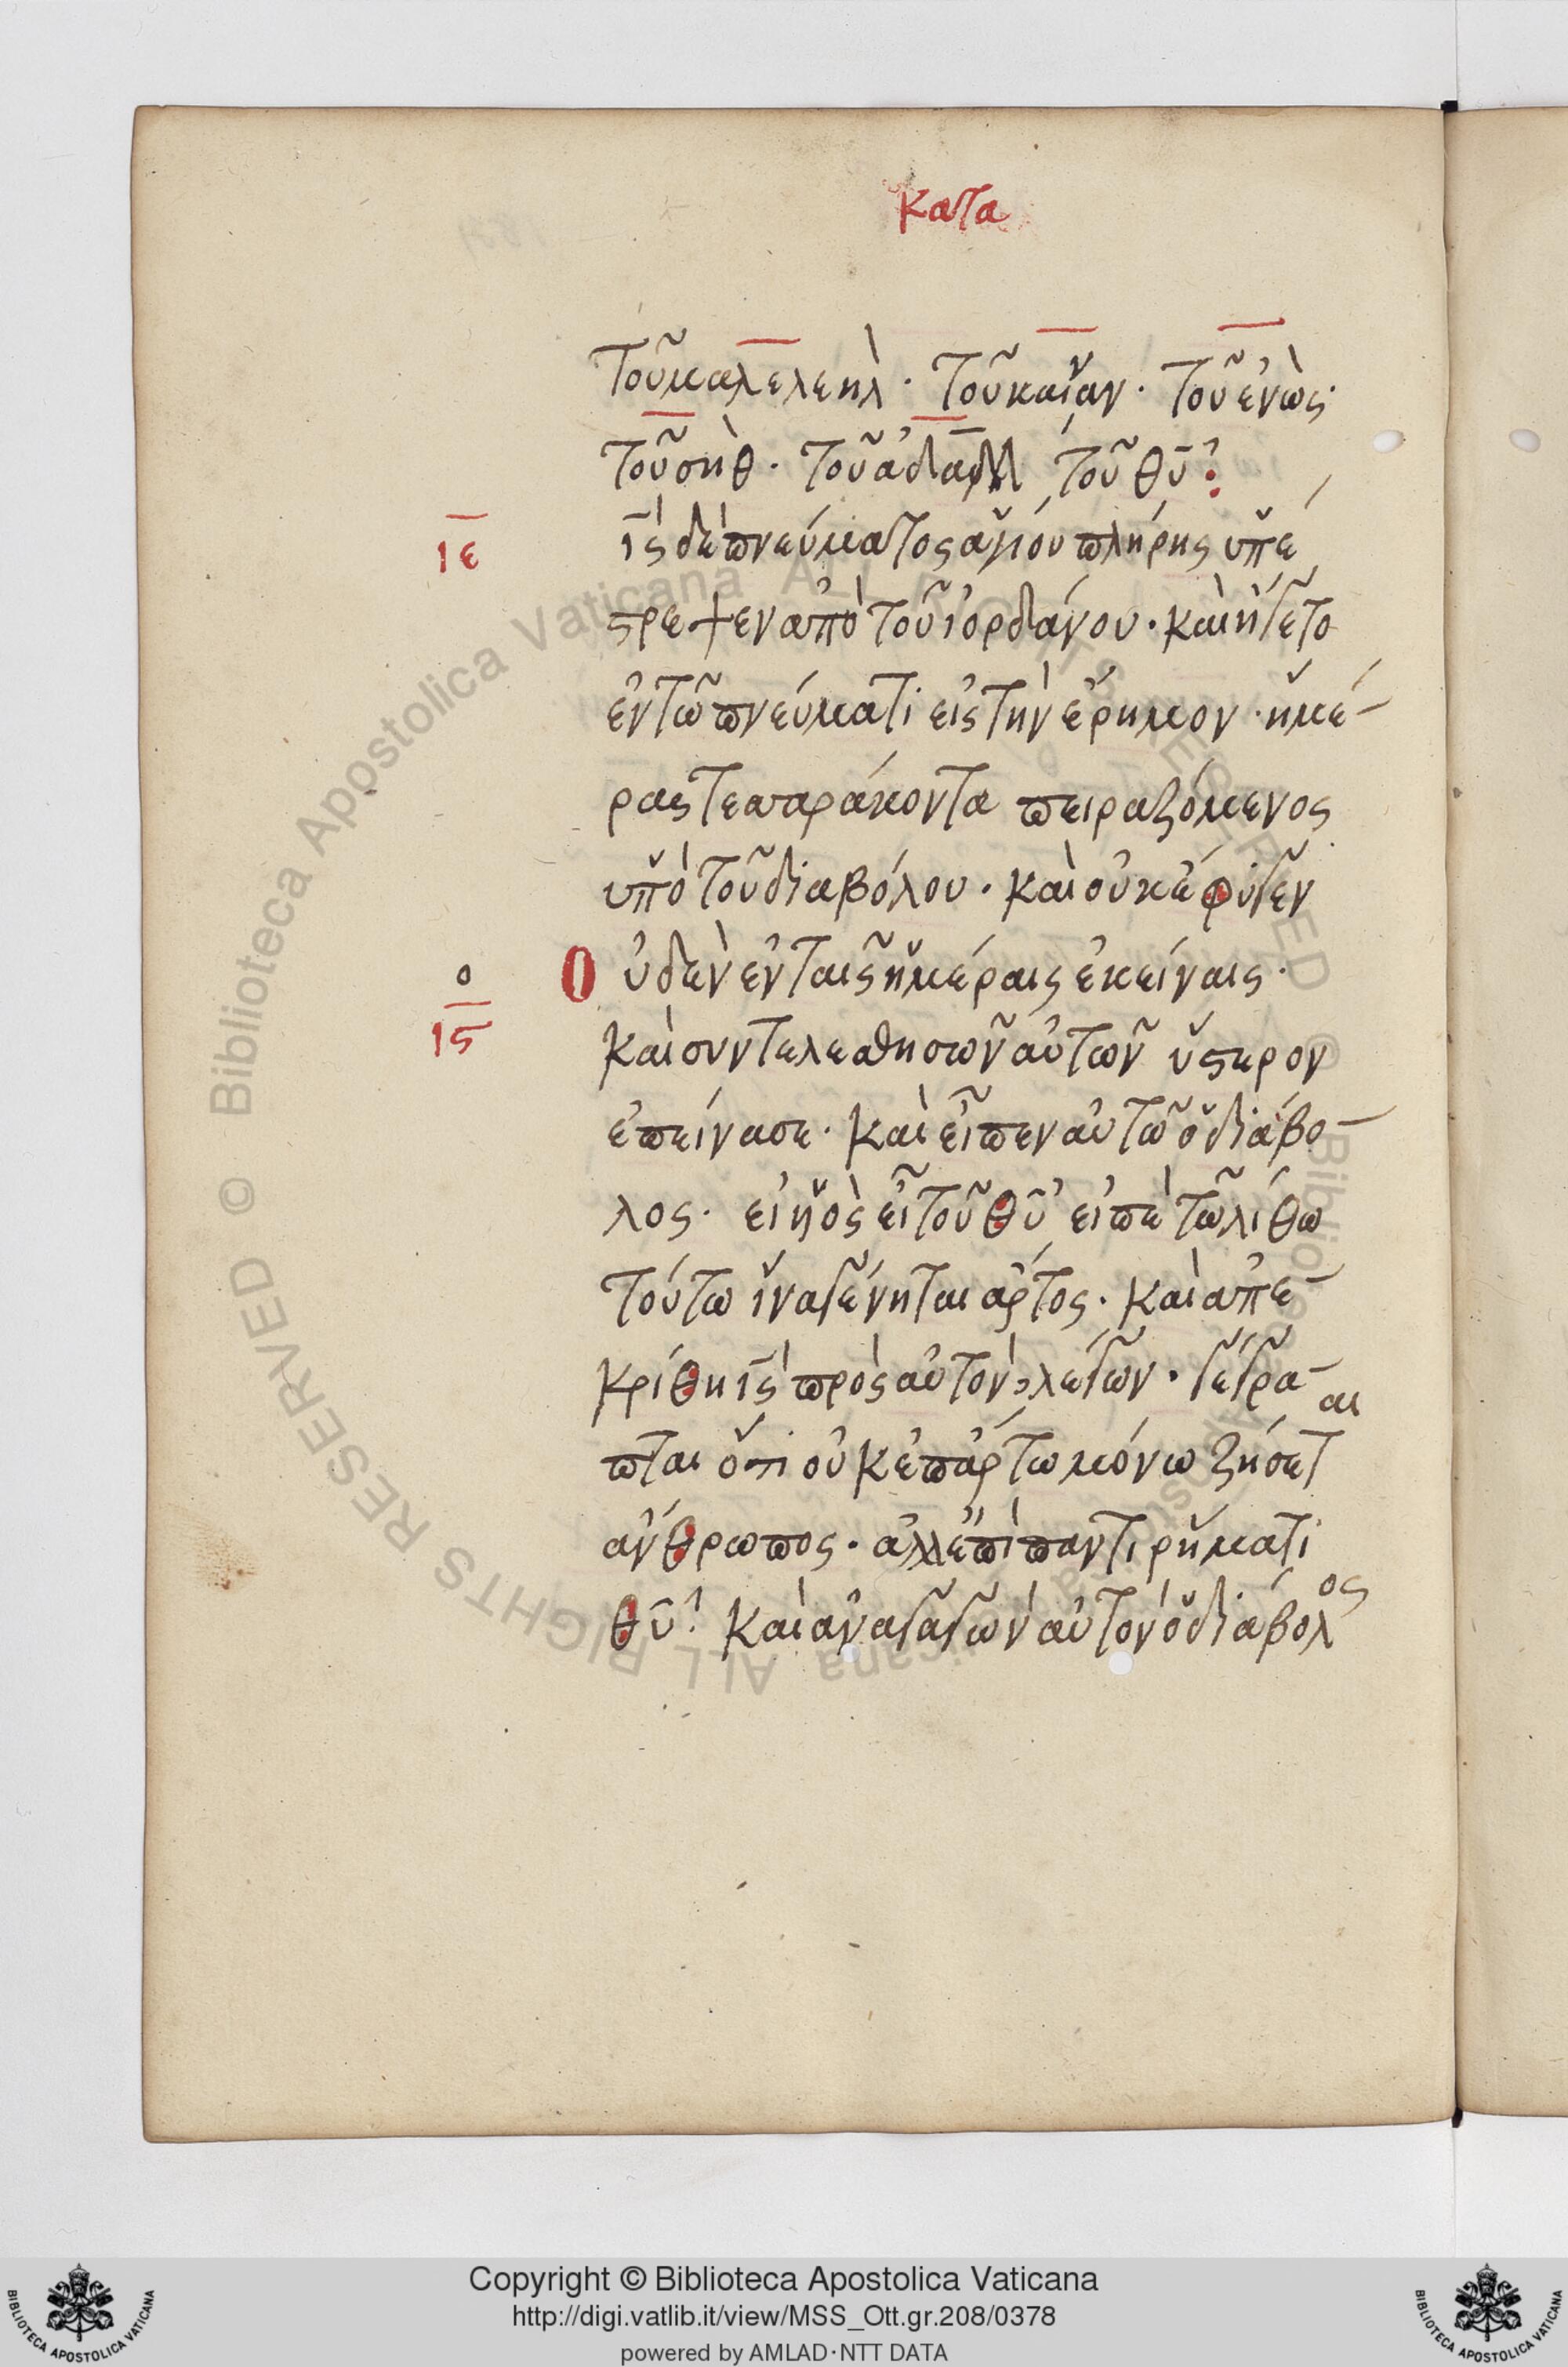 κατα
τοῦ μαλελεὴλ · τοῦ καϊναν · τοῦ ἐνὼς ·
τοῦ σὴθ · τοῦ ἀδάμ τοῦ θῦ :
ιε
ῑς δὲ πνεύματος ἁγίου πλήρης ὑπέ
στρεψεν ἀπὸ τοῦ ἰορδάνου · καὶ ἤγετο
ἐν τῶ πνεύματι εἰς τὴν ἔρημον · ἡμέ-
ρας τεσσαράκοντα πειραζόμενος
ὑπὸ τοῦ διαβόλου · καὶ οὐκ ἔφυγεν
ο
Οὐδὲν ἐν ταῖς ἡμέραις ἐκείναις ·
ις
καὶ συντελεσθησων αὐτῶν ὕστερον
ἐπείνασε · καὶ εἶπεν αὐτῶ ὁ διάβο-
λος · εἰ ηὸς εἶ τοῦ θῦ εἰπὲ τῶ λίθω
τούτω ἵνα γένηται ἄρτος · καὶ ἀπε-
κρίθη ῑς πρὸς αὐτὸν λέγων · γέγρα-
πται ὅτι οὐκ ἐπ ἄρτω μόνω ζήσεται
ἄνθρωπος · ἀλλ ἐπὶ παντι ρήματι
θῦ : καὶ ἀναγαγὼν αὐτὸν ὁ διάβολος
Copyright © Biblioteca Apostolica Vaticana
http://digi.vatlib.it/view/MSS_Ott.gr.208/0378
powered by AMLAD·NTT DATA
BIBLIOTECA APOSTOLICA VATICANA
BIBLIOTECA APOSTOLICA VATICANA
© Biblioteca Apostolica Vaticana ALL RIGHTS RESERVED © Biblioteca Apostolica Vaticana ALL RIGHTS RESERVED